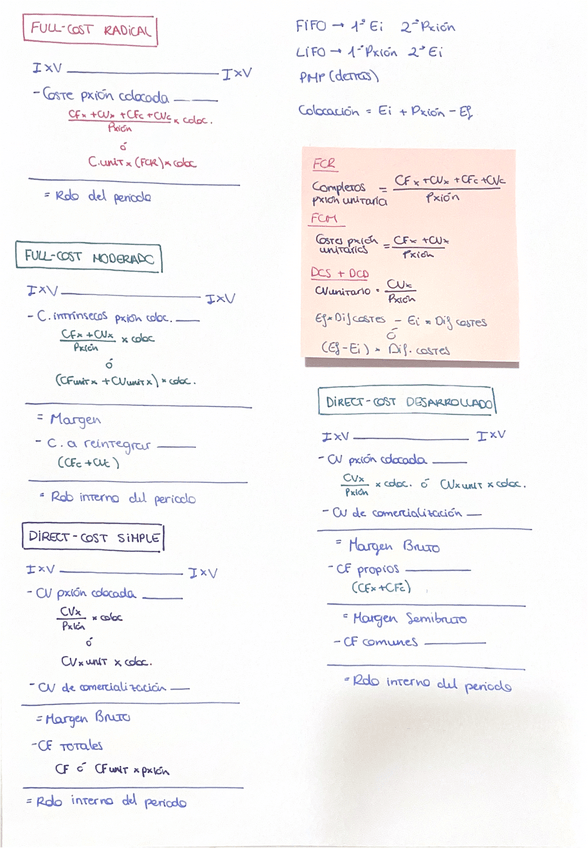 FULL-COST RADICAL
IxV ____________ IxV
- Coste pxión colocada ____
CFx + CVx + CFc + CVc / Pxión x coloc.
ó
C.unit x (FCR) x coloc
= Rdo del periodo
FULL-COST MODERADO
IxV ____________ IxV
- C. intrínsecos pxión coloc. ____
CFx + CVx / Pxión x coloc
ó
(CFunit x + CVunit x) x coloc.
= Margen
- C. a reintegrar ____
(CFc + CVc)
= Rdo interno del periodo
DIRECT-COST SIMPLE
IxV ____________ IxV
- CV pxión colocada ____
CVx / Pxión x coloc
ó
CVx unit x coloc.
- CV de comercialización ____
= Margen Bruto
- CF TOTALES
CF ó CFunit x pxión
= Rdo interno del periodo
FIFO → 1º Ei 2º Pxión
LIFO → 1º Pxión 2º Ei
PMP (detrás)
Colocación = Ei + Pxión - Ef
FCR
Completos pxión unitaria = CFx + CVx + CFc + CVc / Pxión
FCM
Costes pxión unitarios = CFx + CVx / Pxión
DCS + DCD
CVunitario = CVx / Pxión
Ef = Dif costes - Ei = Dif costes
ó
(Ef - Ei) = Dif. costes
DIRECT-COST DESARROLLADO
IxV ____________ IxV
- CV pxión colocada ____
CVx / Pxión x coloc. ó CVx unit x coloc.
- CV de comercialización ____
= Margen Bruto
- CF propios ____
(CFx + CFc)
= Margen Semibruto
- CF comunes ____
= Rdo interno del periodo